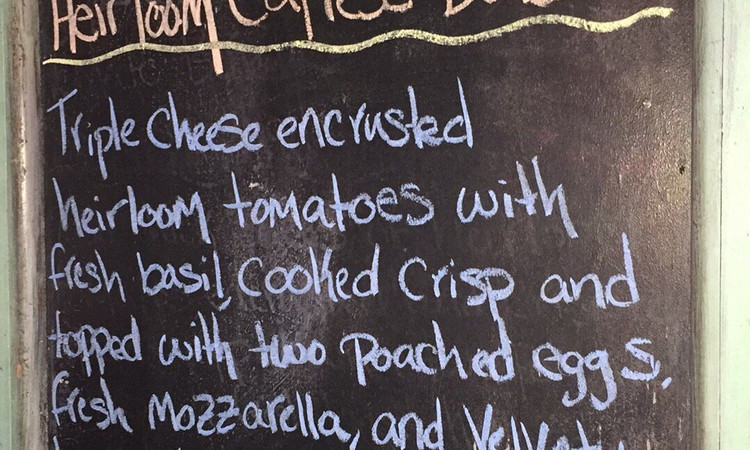 Heirloom
Triple Cheese encrusted
heirloom tomatoes with
fresh basil, Cooked Crisp and
topped with two Poached eggs,
fresh Mozzarella, and Velvety